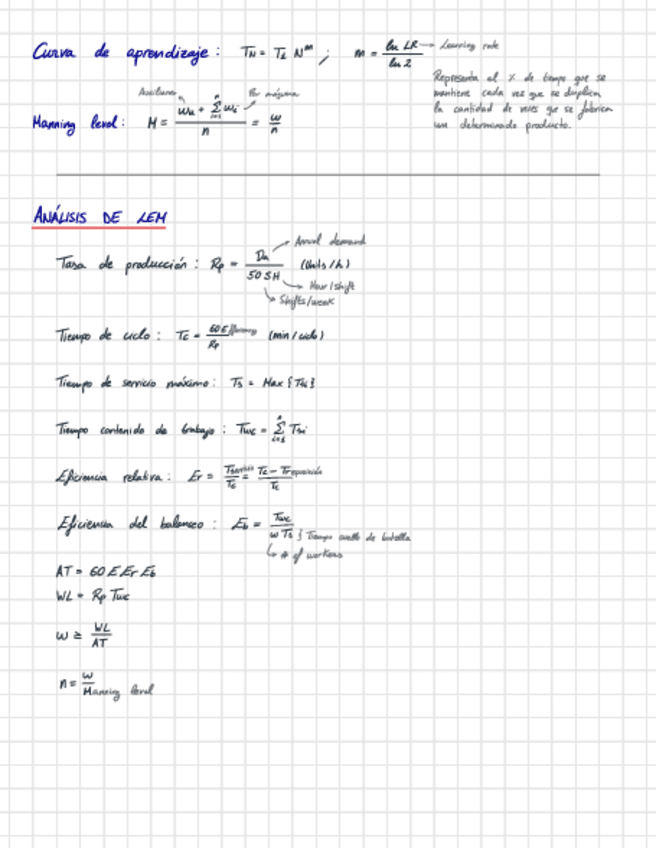 Curva de aprendizaje : T_N = T_1 N^m ; m = ln LR / ln 2 → Learning rate
Representa el % de tiempo que se
mantiene cada vez que se duplica
la cantidad de veces que se fabrica
un determinado producto.
Auxiliares Por máquina
Manning level : M = (w_u + Σ_{i=1}^{n} w_i) / n = w / n
ANÁLISIS DE LEM
Tasa de producción : R_p = D_a / 50 S H (Units/h)
Annual demand
Hour/shift
Shifts/week
Tiempo de ciclo : T_c = 60 E efficiency / R_p (min/ciclo)
Tiempo de servicio máximo : T_s = Max { T_si }
Tiempo contenido de trabajo : T_wc = Σ_{i=1}^{n} T_si
Eficiencia relativa : E_r = T_servicio / T_c = (T_c - T_reposición) / T_c
Eficiencia del balanceo : E_b = T_wc / w T_s } Tiempo cuello de botella
# of workers
AT = 60 E E_r E_b
WL = R_p T_wc
w ≥ WL / AT
n = w / Manning level